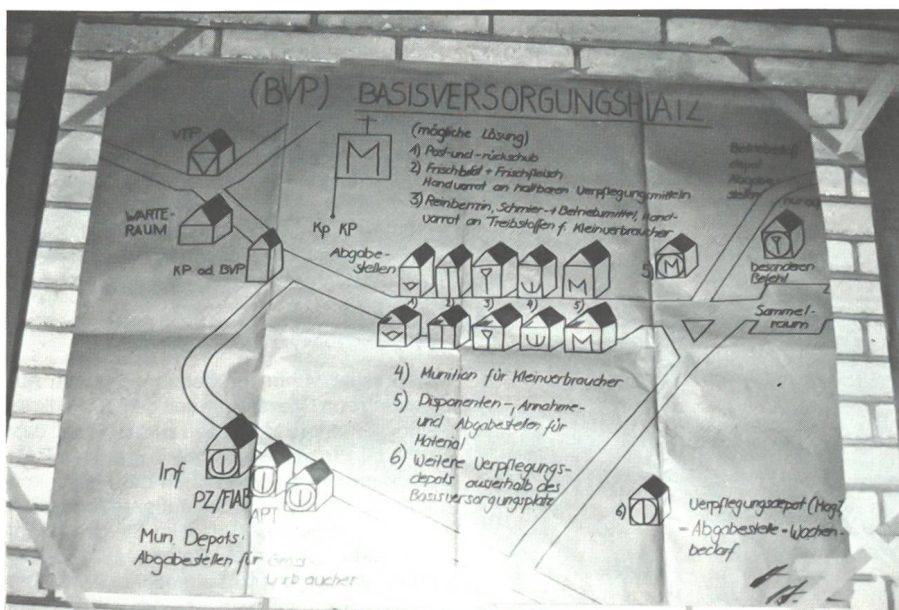 (BVP) BASISVERSORGUNGSPLATZ
(mögliche Lösung)
1) Post-und-rückschub
2) Frischbrot + Frischfleisch
Handvorrat an haltbaren Verpflegungsmitteln
3) Reinbenzin, Schmier-+ Betriebsmittel, Hand-
vorrat an Treibstoffen f. Kleinverbraucher
VTP
M
Kp KP
WARTE-
RAUM
KP od BVP
Abgabe-
stellen
M
1)
2)
3)
4)
5)
M
5)
M
Betriebsstoff
stellen
nur auf
besonderen
Befehl
Sammel-
raum
4) Munition für Kleinverbraucher
5) Disponenten-, Annahme-
und Abgabestellen für
Material
6) Weitere Verpflegungs-
depots ausserhalb des
Basisversorgungsplatz
Inf
PZ/FLAB
ART
Mun. Depots.
Abgabestellen für
6)
Verpflegungsdepot (Mag)
- Abgabestelle-Wochen-
bedarf